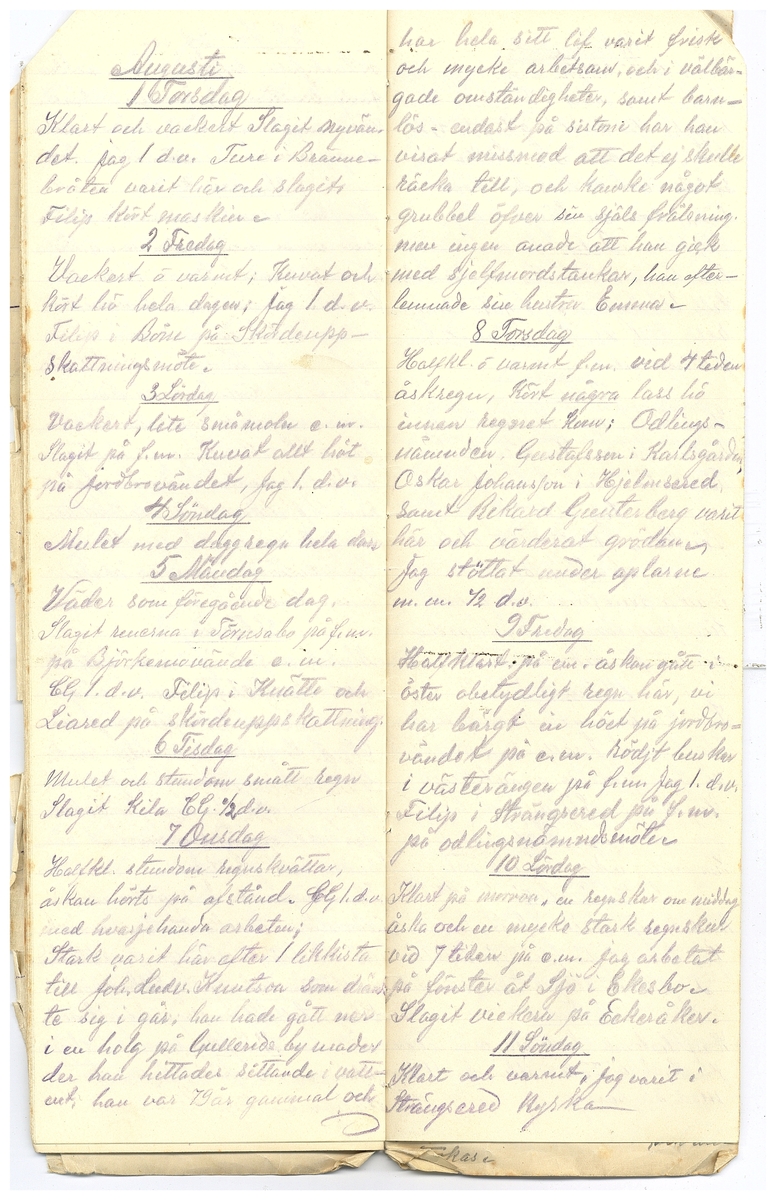 Augusti
1 Torsdag
Klart och vackert Slagit nyvän-
det. jag 1 d.v. Ture i Brænne-
bråten varit här och slagit.
Filip kört maskin
2 Fredag
Vackert o varmt; Kuvat och
kört hö hela dagen; Jag 1. d.v.
Filip i Böne på Skördeupp-
skattningsmöte.
3 Lördag
Vackert, lite småmoln e.m.
Slagit på f.m. Kuvat allt höt
på jordbrovändet, Jag 1. d.v.
4 Söndag
Mulet med duggregn hela dan
5 Måndag
Väder som föregående dag.
Slagit renerna i Törnsabo på f.m.
på Björkemovände e.m.
CG 1. d.v. Filip i Knätte och
Liared på skördeuppskattning.
6 Tisdag
Mulet och stundom smått regn
Slagit Kila CG. 1/2 d.v.
7 Onsdag
Halfkl. stundom regnskvättar,
åskan hörts på afstånd. CG 1. d.v.
med hvarjehanda arbeten;
Stark varit här efter 1 likkista
till Joh. Ludv. Knutson som dränk-
te sig i går; han hade gått ner
i en holg på Gullereds by mader
der han hittades sittande i vatt-
net; han var 79 år gammal och
har hela sitt lif varit frisk
och mycke arbetsam, och i välbär-
gade omständigheter, samt barn-
lös - endast på sistone har han
visat missmod att det ej skulle
räcka till, och kanske något
grubbel öfver sin själs frälsning.
men ingen anade att han gick
med sjelfmordstankar, han efter-
lemnade sin hustru Emma.
8 Torsdag
Halfkl. o varmt f.m. vid 4 tiden
åskregn, Kört några lass hö
innan regnet kom; Odlings-
nämnden. Gustafsson i Karlsgården
Oskar Johansson i Hjelmsered.
samt Rikard Gunterberg varit
här och värderat grödan
Jag stöttat under aplarne
m.m. 1/2 d.v.
9 Fredag
Halfklart. på em. åskan gått i
öster obetydligt regn här, vi
har bärgt in höet på jordbro-
vändet på e.m. Rödjt buskar
i västerängen på f.m Jag 1. d.v.
Filip i Strängsered på f.m.
på odlingsnämndsmöte
10 Lördag
Klart på morron, en regnskur om middag
åska och en mycke stark regnskur
vid 7 tiden på e.m. Jag arbetat
på fönster åt Sjö i Ekesbo
Slagit vickern på Eckeråker.
11 Söndag
Klart och varmt; jag varit i
Strängsered Kyrka